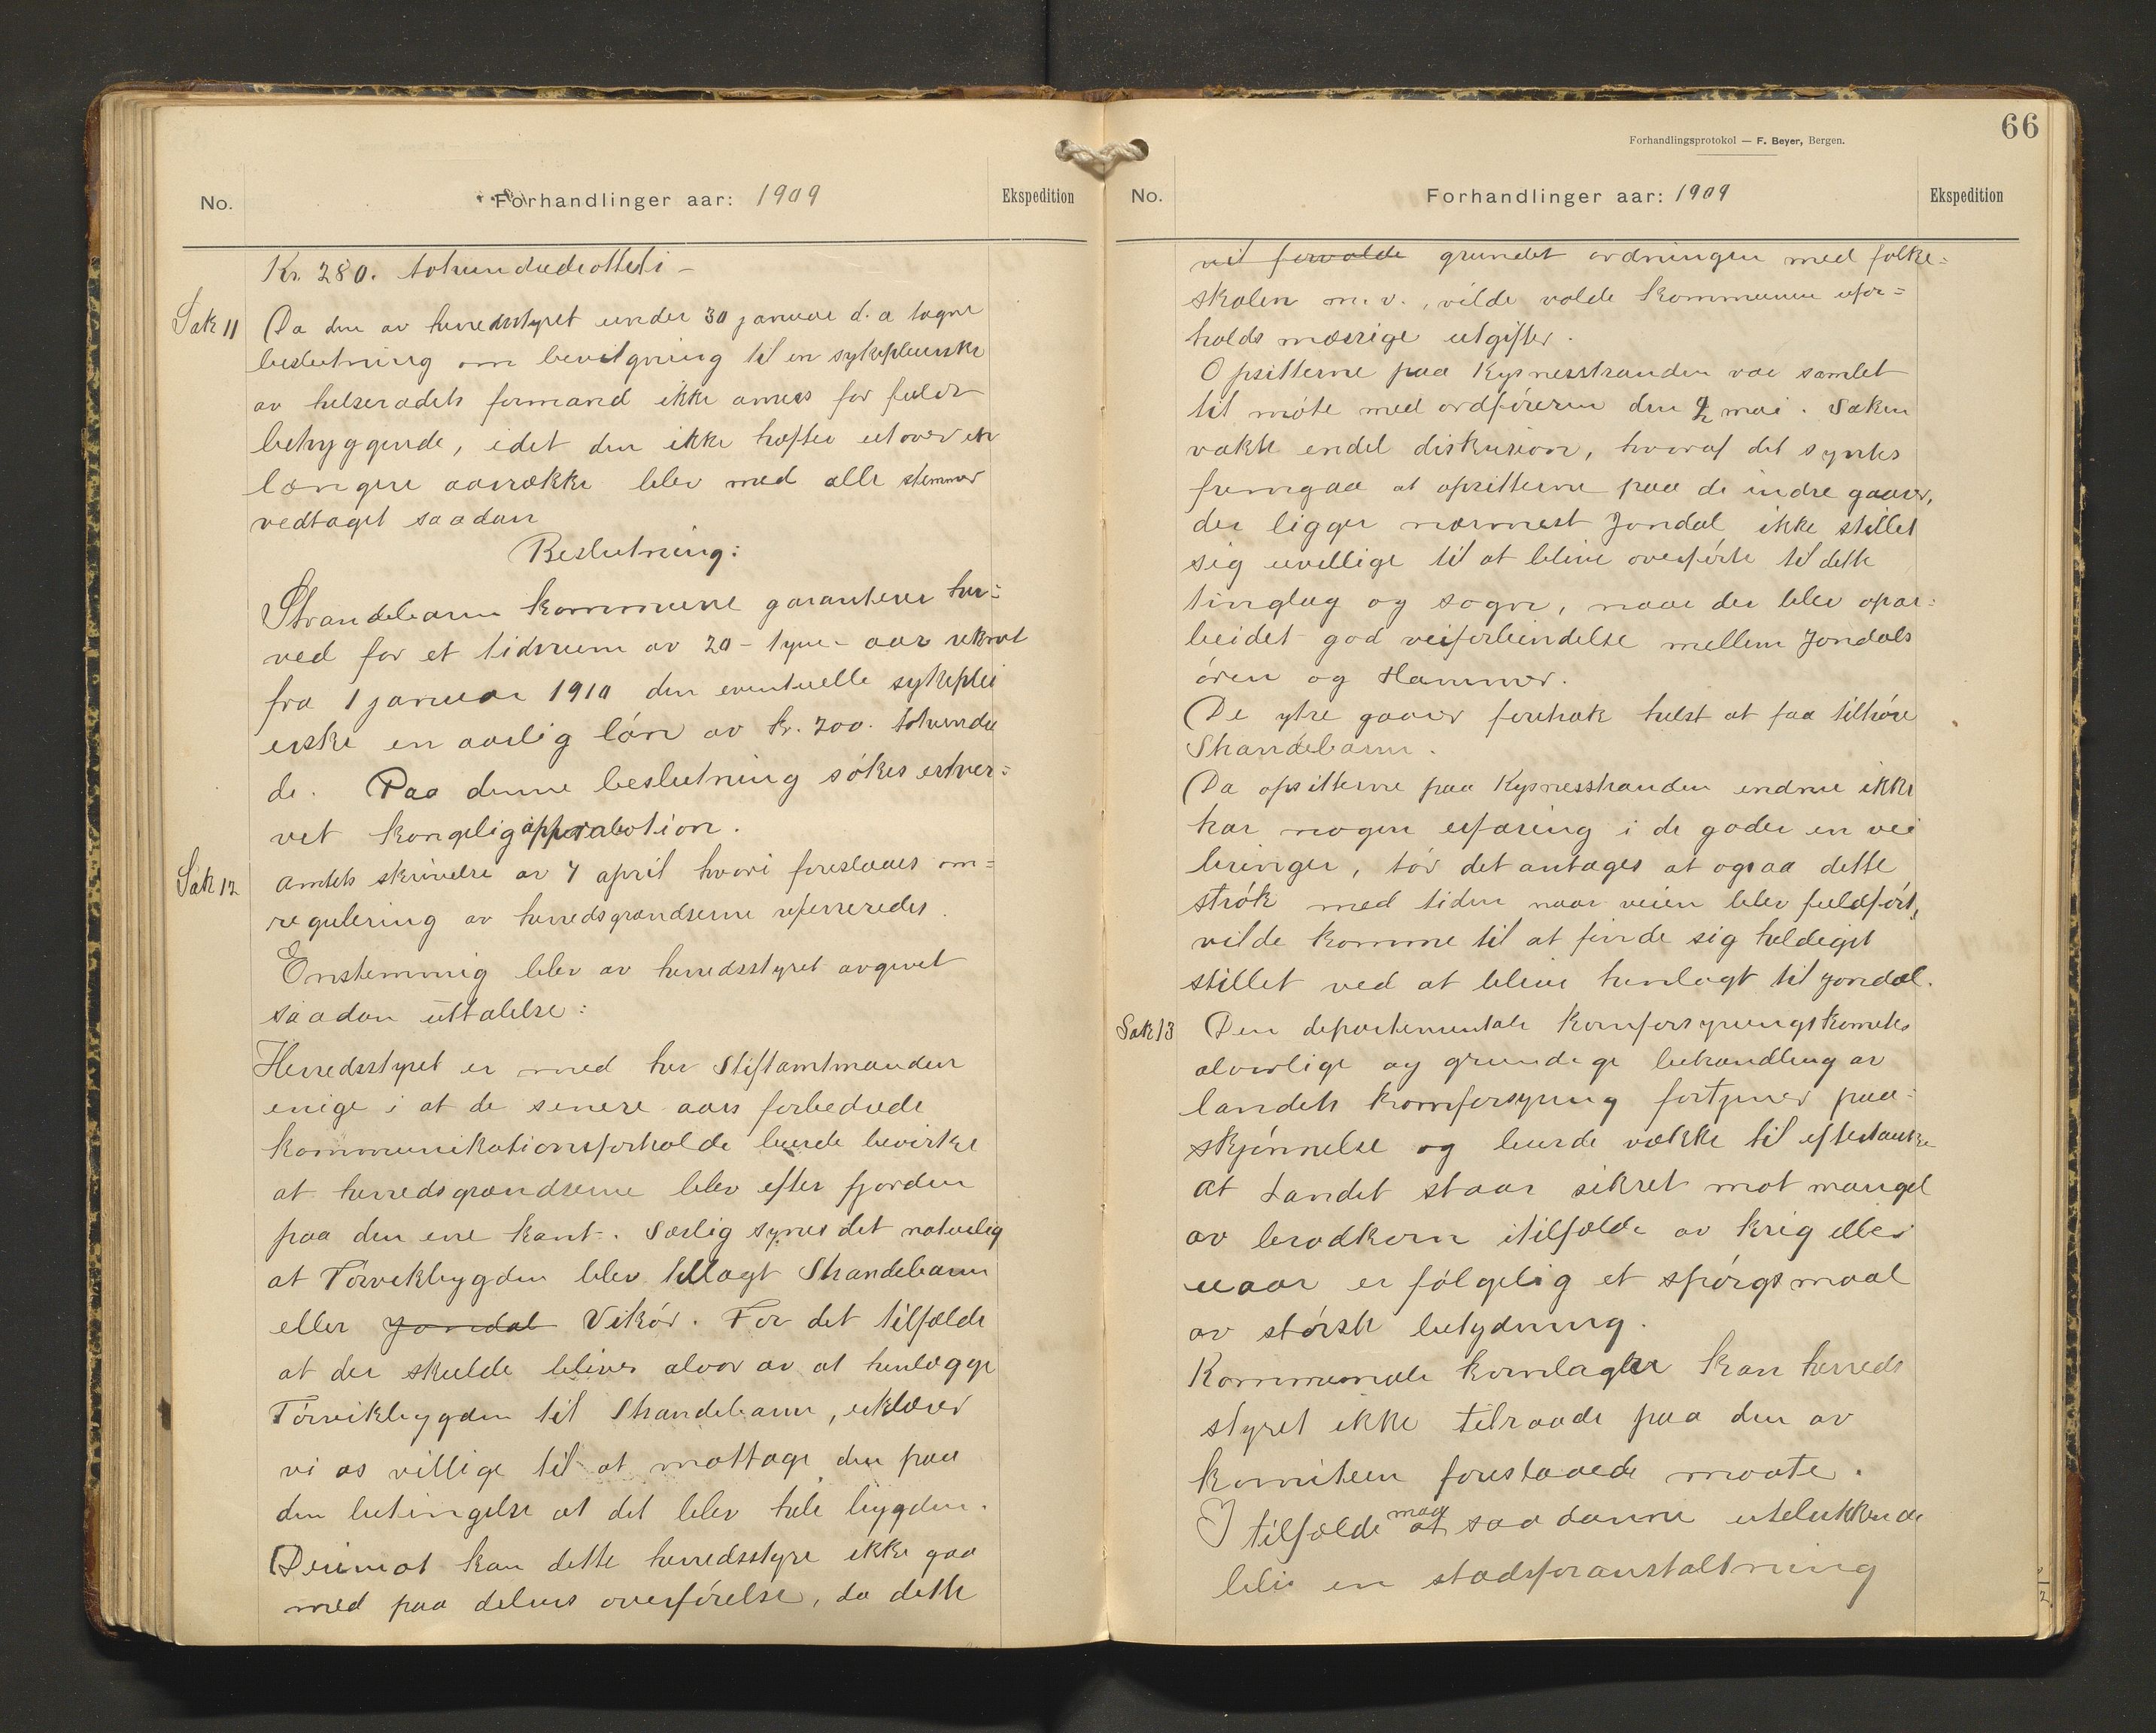 No.
Forhandlinger aar: 1909
Ekspedition
Kr. 280. tohundredeotteti -
Sak 11
Da den av herredsstyret under 30 januar d. a tagne
beslutning om bevilgning til en sykepleierske
av helseradets formand ikke ansees for fuldt
betryggende, idet den ikke hæfter utover en
længere aarrække blev med alle stemmer
vedtaget saadan
Beslutning:
Strandebarm kommune garanterer her=
ved for et tidsrum av 20 - tyve - aar reknet
fra 1 januar 1910 den eventuelle sykeplei
erske en aarlig løn av kr. 200. tohundre
de. Paa denne beslutning søkes erhver=
vet kongelig approbation.
Sak 12
Amtets skrivelse av 7 april hvori foreslaaes om=
regulering av herredsgrændserne refereredes.
Enstemmig blev av herredsstyret avgivet
saadan uttalelse:
Herredsstyret er med hr Stiftamtmanden
enige i at de senere aars forbedrede
kommunikationsforholde burde bevirke
at herredsgrændserne blev efter fjorden
paa den ene kant. Særlig synes det naturlig
at Tørvikbygden blev tillagt Strandebarm
eller Jondal Vikør. For det tilfælde
at der skulde bliver alvor av at henlægge
Tørvikbygden til Strandebarm, erklærer
vi os villige til at mottage den paa
den betingelse at det blev hele bygden.
Derimot kan dette herredsstyre ikke gaa
med paa delvis overførelse, da dette
66
Forhandlingsprotokol — F. Beyer, Bergen.
No.
Forhandlinger aar: 1909
Ekspedition
vil forvolde grundet ordningen med folke=
skolen m. v., vilde volde kommunen ufor=
holds mæssige utgifter.
Opsitterne paa Kysnesstranden var samlet
til møte med ordføreren den 2 mai. Saken
vakte endel diskusion, hvoraf det syntes
fremgaa at opsitterne paa de indre gaarer,
der ligger nærmest Jondal ikke stillet
sig uvillige til at bline overførte til dette
tinglag og sogn, naar der blev opar=
beidet god veiforbindelse mellem Jondals
øren og Hammer.
De ytre gaarer foretrak helst at faa tilhøre
Strandebarm.
Da opsitterne paa Kysnesstranden endnu ikke
har nogen erfaring i de goder en vei
bringer, tør det antages at ogsaa dette
strøk med tiden naar veien blev fuldført,
vilde komme til at finde sig heldigst
stillet ved at blive henlagt til Jondal.
Sak 13
Den departementale Kornforsyningskomites
alvorlige og grundige behandling av
landets kornforsyning fortjener paa=
skjønnelse og burde vække til eftertanke
At Landet staar sikret mot mangel
av brødkorn itilfælde av krig eller
uaar er følgelig et spørgsmaal
av største betydning.
Kommunale kornlagre kan herreds
styret ikke tilraade paa den av
komiteen foreslaaede maate.
I tilfælde maa at saadanne utelukkende
bli en statsforanstaltning